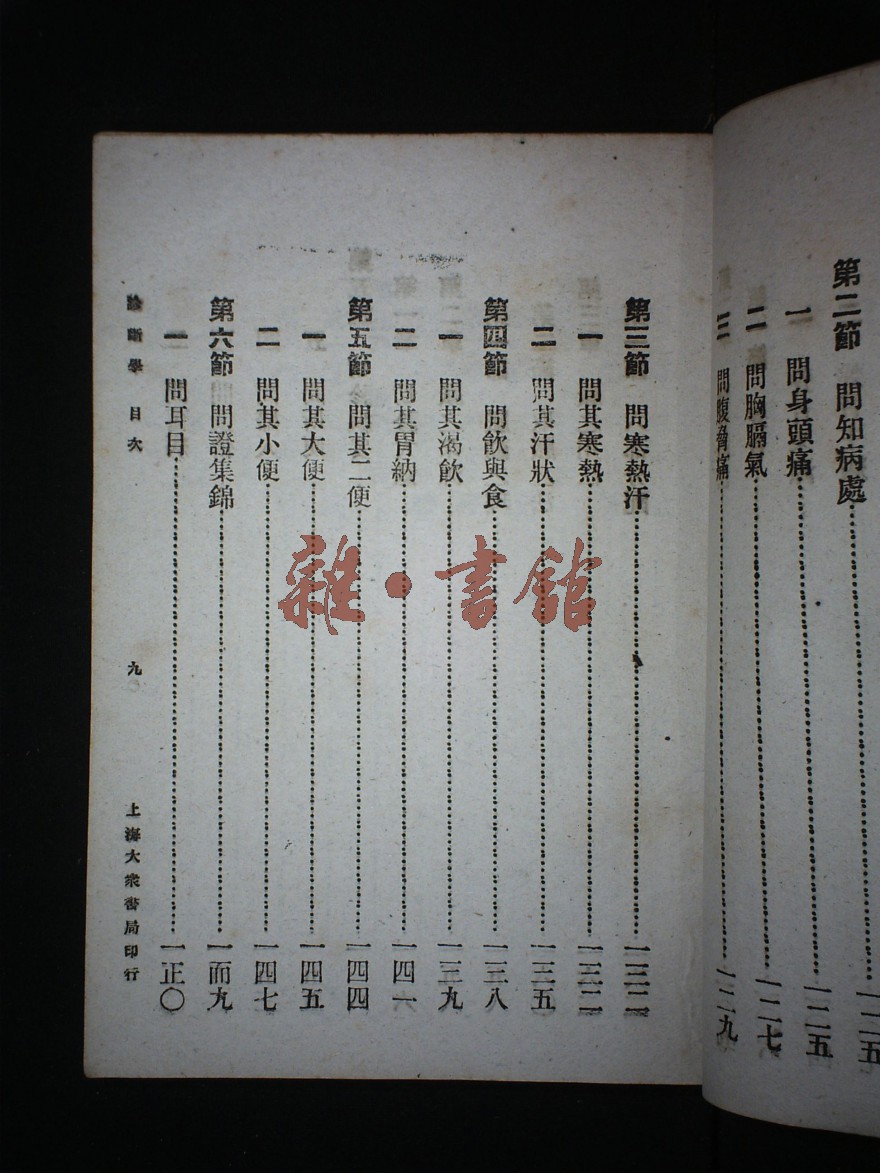 第二節 問知病處……一二五
一 問身頭痛……一二五
二 問胸膈氣……一二七
三 問腹脅痛……一二九
第三節 問寒熱汗……一三二
一 問其寒熱……一三二
二 問其汗狀……一三五
第四節 問飲與食……一三八
一 問其渴飲……一三九
二 問其胃納……一四一
第五節 問其二便……一四四
一 問其大便……一四五
二 問其小便……一四七
第六節 問證集錦……一而九
一 問耳目……一正〇
診斷學 目次 九 上海大衆書局印行
雜·書館